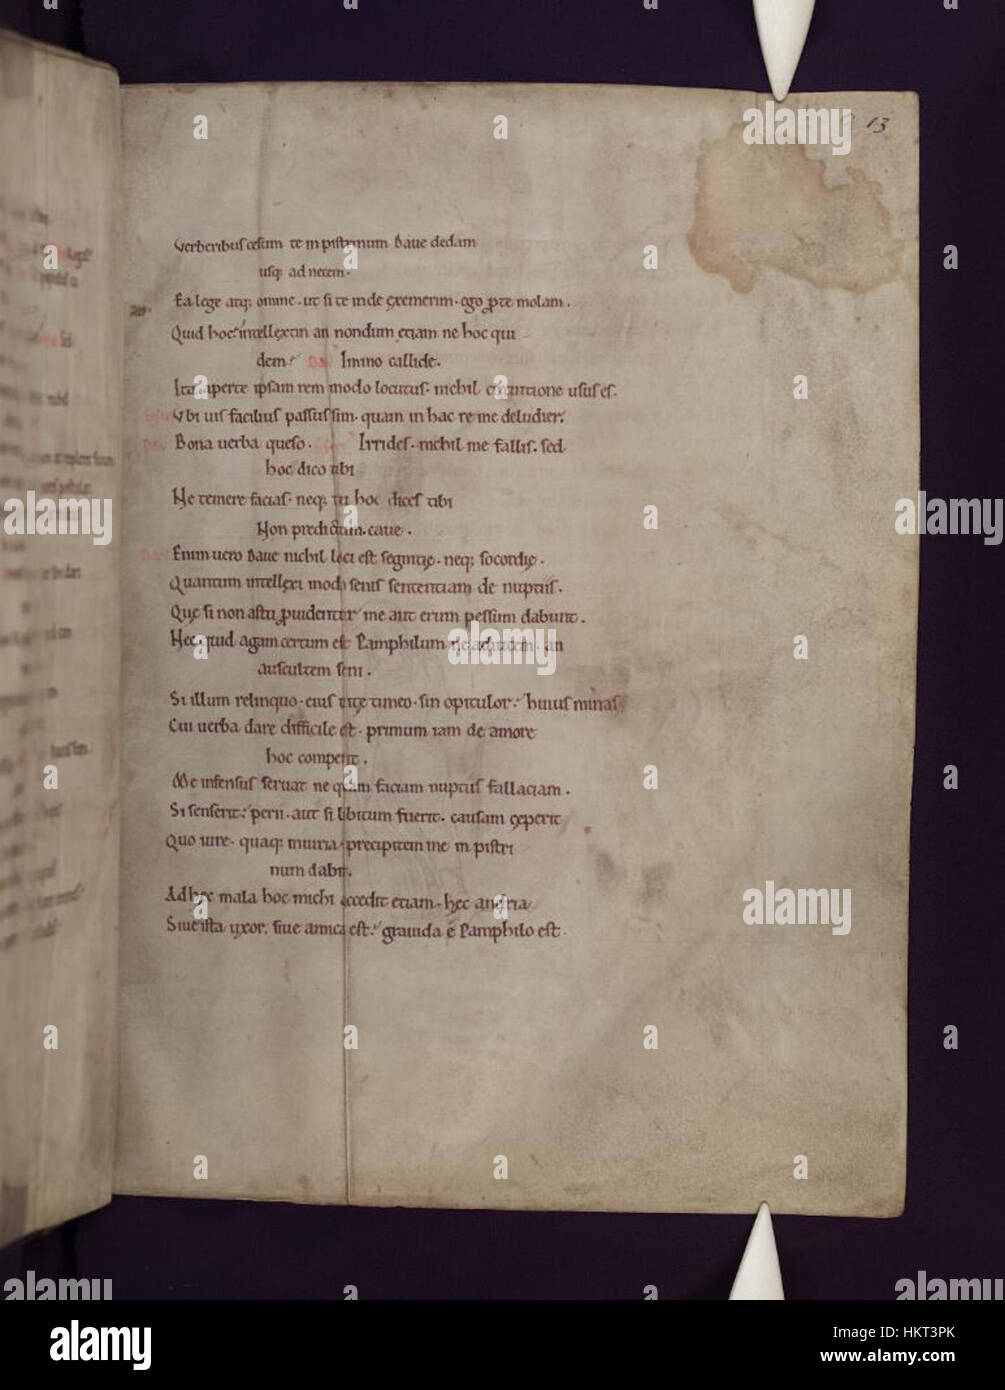 13
Verberibus cesum te in pistrinum Daue dedam
usq; ad necem.
Ea lege atq; omine. ut si te inde exemerim. ego pro te molam.
Quid hoc? intellextin an nondum etiam ne hoc qui
dem? Immo callide.
Ita aperte ipsam rem modo locutus. nichil circuitione usus es.
Vbi uis facilius passus sim. quam in hac re me deludier.
Bona uerba queso. Irrides. nichil me fallis. sed
hoc dico tibi
Ne temere facias. neq; tu hoc dices tibi
Non predictum. caue.
Enim uero Daue nichil loci est segnitię. neq; socordię.
Quantum intellexi modo senis sententiam de nuptiis.
Quę si non astu prouidentur me aut erum pessum dabunt.
Nec quid agam certum est Pamphilum ne adiutem. an
auscultem seni.
Si illum relinquo. eius uitę timeo. sin opitulor? huius minas
Cui uerba dare difficile est. primum iam de amore
hoc comperit.
Me infensus seruat ne quam faciam nuptiis fallaciam.
Si senserit? perii. aut si libitum fuerit. causam ceperit
Quo iure. quaq; iniuria. precipitem me in pistri
num dabit.
Ad hec mala hoc michi accedit etiam. hec andria
Siue ista uxor. siue amica est? grauida e Pamphilo est.
alamy
Image ID: HKT3PK
www.alamy.com